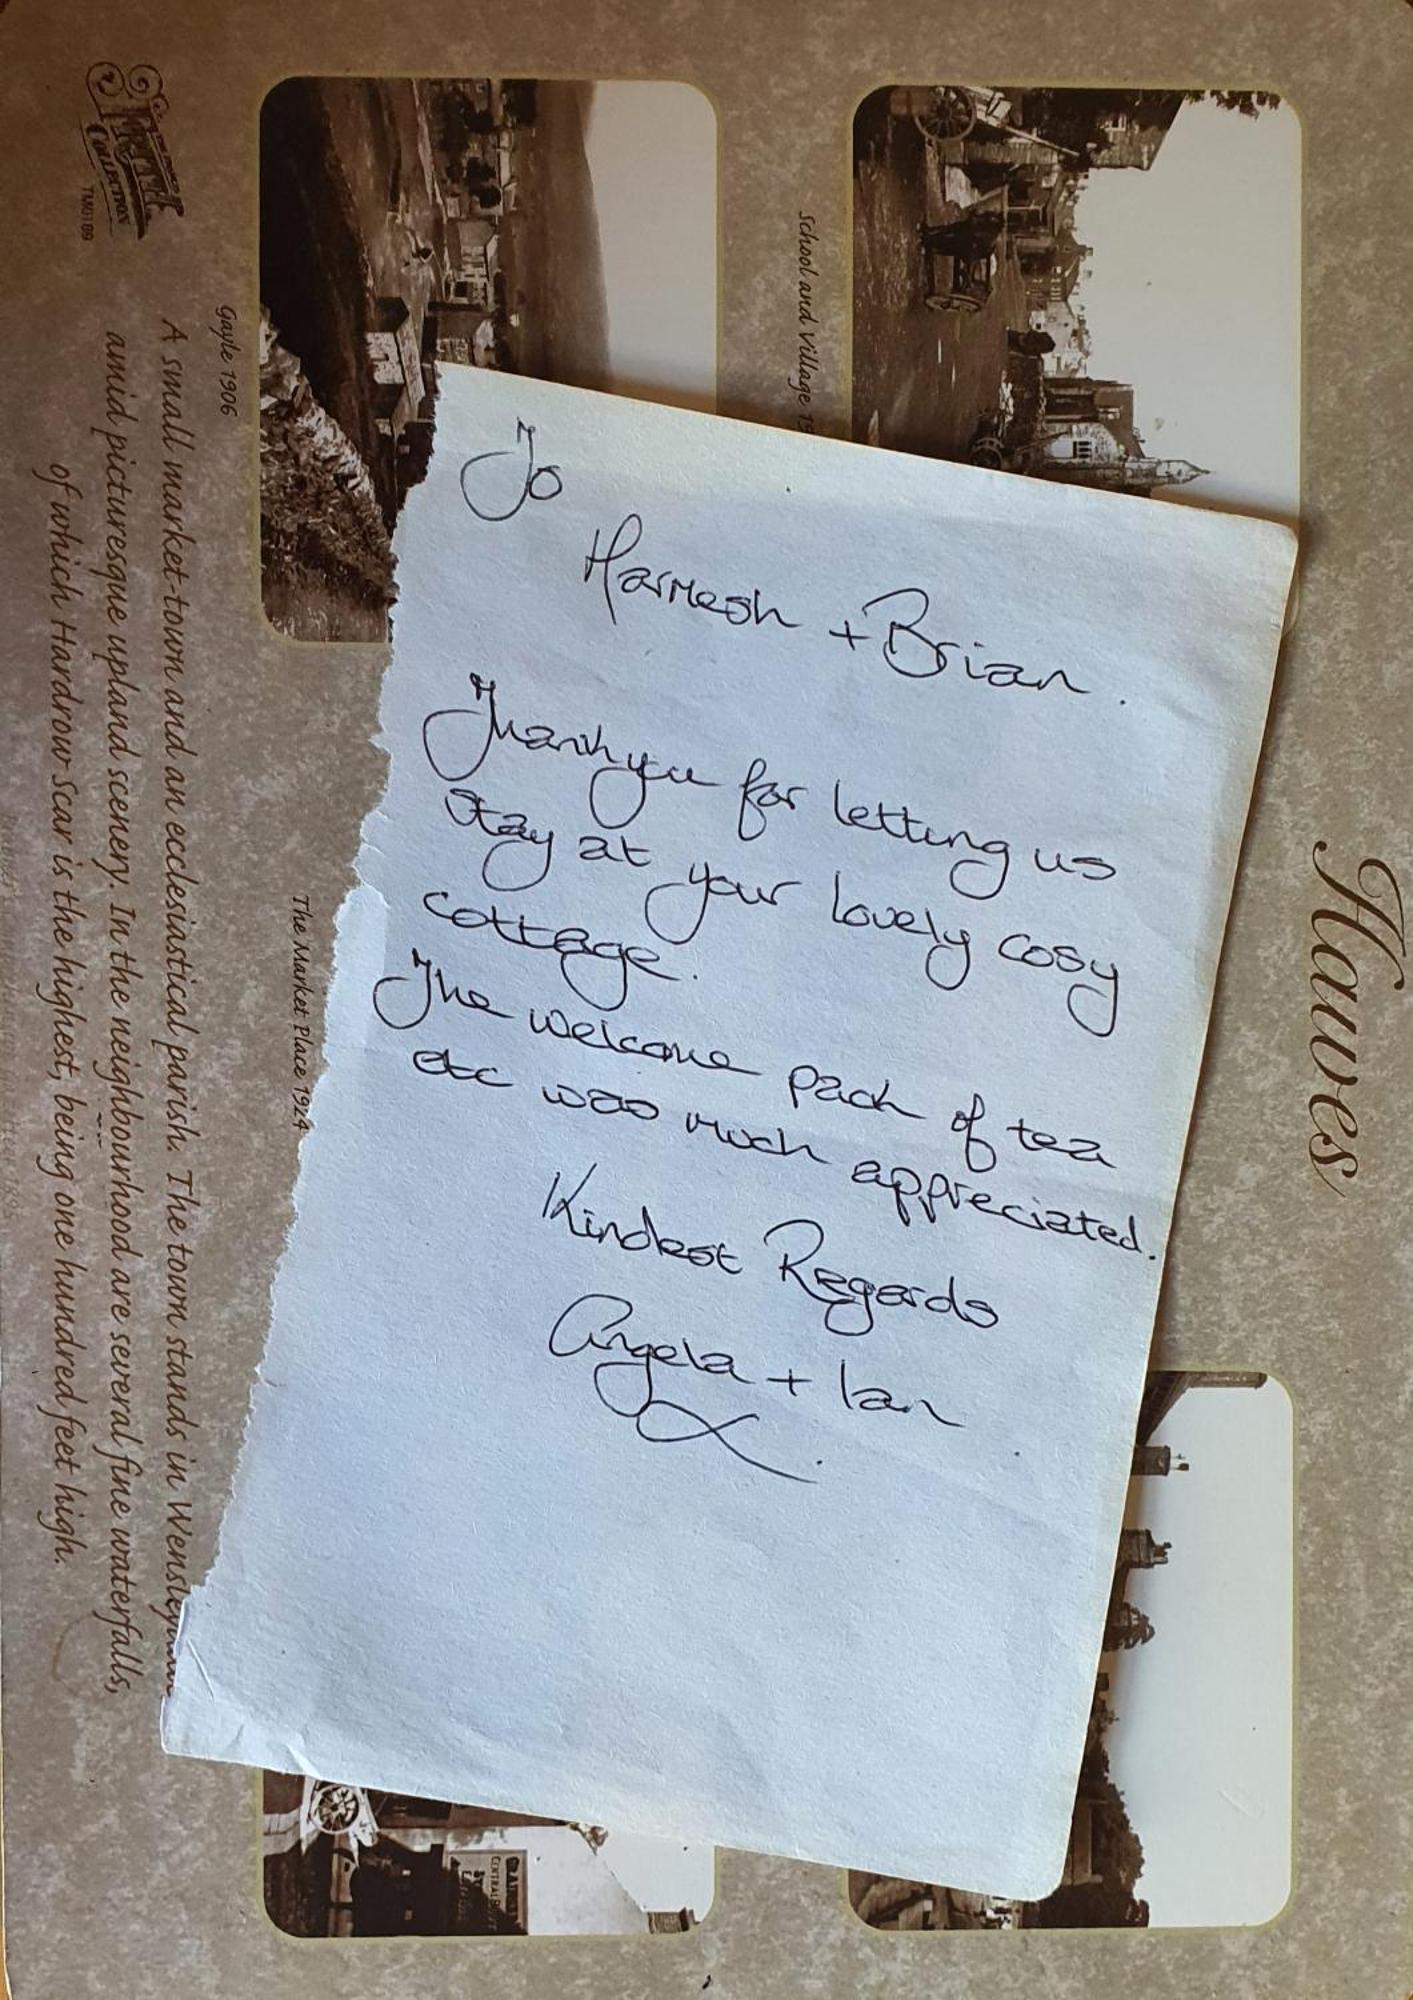 To
Harmesh + Brian.
Thankyou for letting us
stay at your lovely cosy
cottage.
The welcome pack of tea
etc was much appreciated.
Kindest Regards
Angela + Ian
Hawes
School and Village
Gayle 1906
The Market Place 1924
A small market-town and an ecclesiastical parish. The town stands in
amid picturesque upland scenery. In the neighbourhood are several fine waterfalls,
of which Hardrow Scar is the highest, being one hundred feet high.
COLLECTION
TM0189
CENTRAL